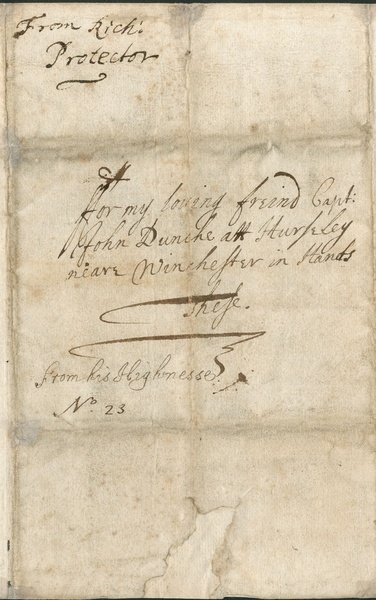 From Rich:
Protector
ffor my loving freind Capt:
John Dunche att Hurseley
neare Winchester in Hants
these.
From his Highnesse
No 23